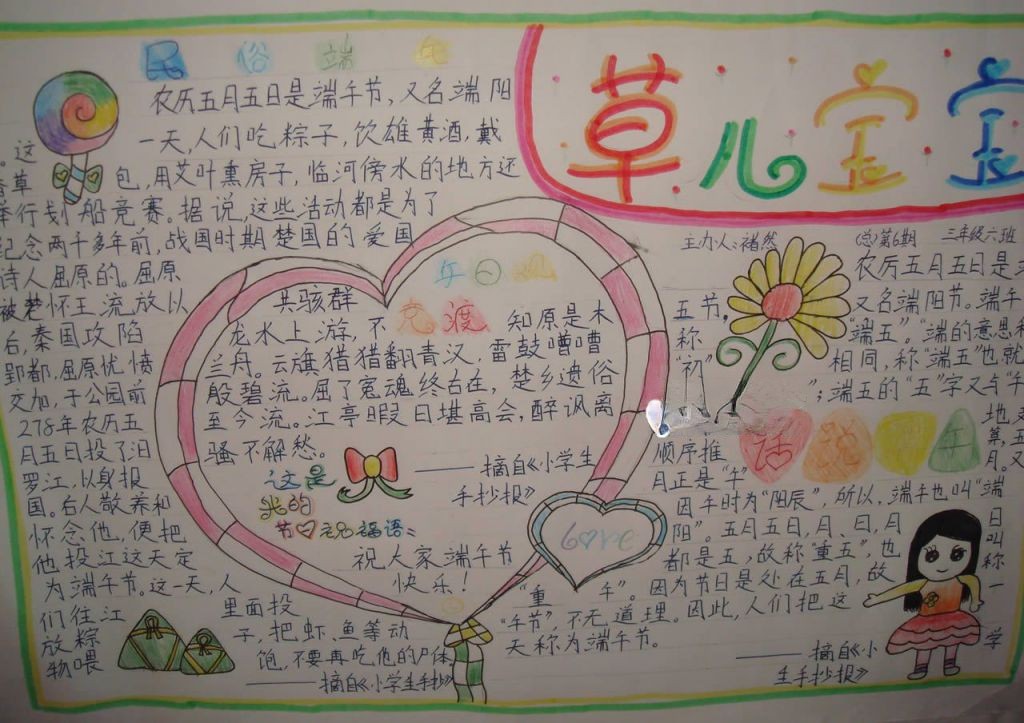 民俗端午
农历五月五日是端午节,又名端阳
。这一天,人们吃粽子,饮雄黄酒,戴
香草包,用艾叶熏房子,临河傍水的地方还
举行划船竞赛。据说,这些活动都是为了
纪念两千多年前,战国时期楚国的爱国
诗人屈原的。屈原
被楚怀王流放以
后,秦国攻陷
郢都,屈原忧愤
交加,于公园前
278年农历五
月五日投了汨
罗江,以身报
国。后人敬养和
怀念他,便把
他投江这天定
为端午节。这一天,人
们往江里面投
放粽子,把虾、鱼等动
物喂饱,不要再吃他的尸体。
——摘自《小学生手抄》
草儿宝宝
主办人:褚然
(总)第6期
三年级六班
午日
竞渡
共骇群
龙水上游,不知原是木
兰舟。云旗猎猎翻青汉,雷鼓嘈嘈
殷碧流。屈了冤魂终古在,楚乡遗俗
至今流。江亭暇日堪高会,醉讽离
骚不解愁。
——摘自《小学生
手抄报》
这是
我的
节祝福语:
祝大家端午节
快乐!
Love
话说端午
农历五月五日是
五节,又名端阳节。端午
称“端五”。“端的意思和
“初”相同,称“端五”也就
;端五的“五”字又与“午
地支
顺序推算,五
月正是“午”月。又
因午时为“阳辰”,所以,端午也叫“端
阳”。五月五日,月、日,月
都是五,故称“重五”,也叫称
“重午”。因为节日是处在五月,故
“午节”,不无道理。因此,人们把这一
天称为端午节。
——摘自《小学
生手抄报》